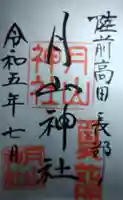 陸前高田 長部
月山神社
令和五年七月
月山
神社